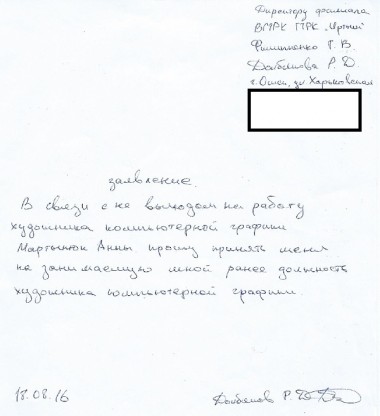 Директору филиала
ВГТРК ГТРК "Иртыш"
Филипенко Г. В.
Р. Д.
г. Омск, ул Харьковская
заявление.
В связи с не выходом на работу
художника компьютерной графики
Мартынюк Анны прошу принять меня
на занимаемую мной ранее должность
художника компьютерной графики.
18.08.16
Р. Д.